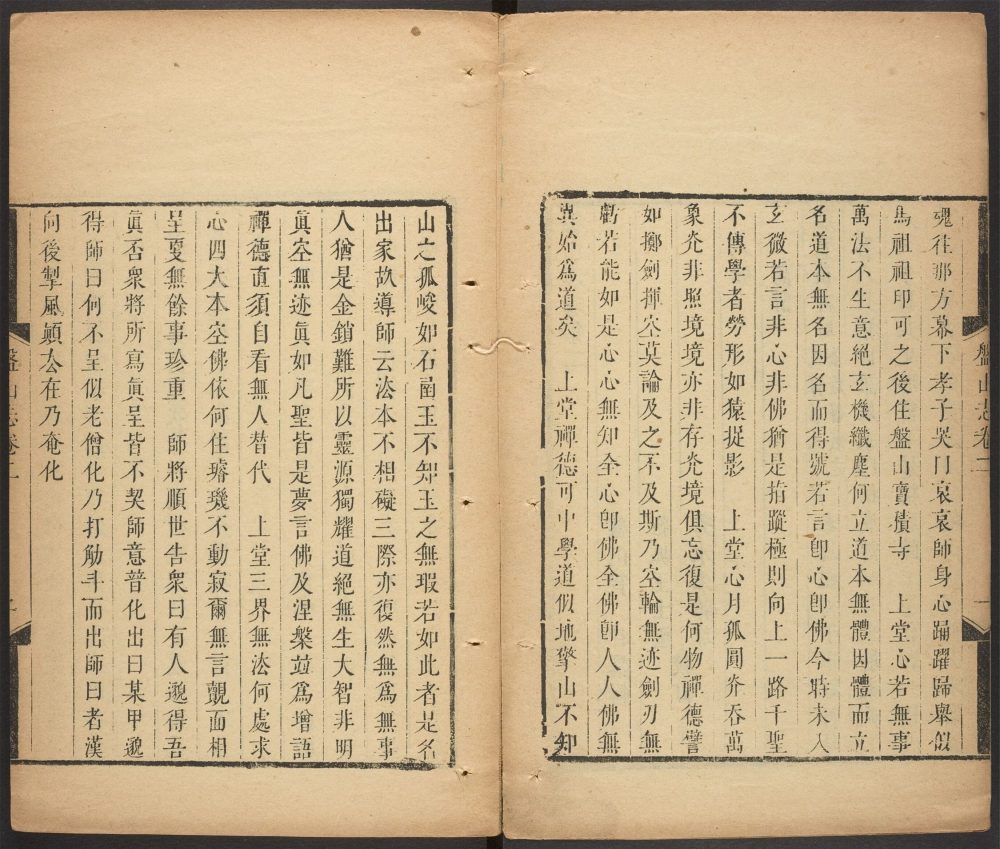 魂往那方幕下孝子哭曰哀哀師身心踊躍歸舉似
馬祖祖印可之後住盤山寶積寺　上堂心若無事
萬法不生意絕玄機纖塵何立道本無體因體而立
名道本無名因名而得號若言即心即佛今時未入
玄微若言非心非佛猶是指蹤極則向上一路千聖
不傳學者勞形如猿捉影　上堂心月孤圓光吞萬
象光非照境境亦非存光境俱忘復是何物禪德譬
如擲劍揮空莫論及之不及斯乃空輪無迹劍刃無
虧若能如是心心無知全心即佛全佛即人人佛無
異始爲道矣　上堂禪德可中學道似地擎山不知
盤山志卷二　一
山之孤峻如石函玉不知玉之無瑕若如此者是名
出家故導師云法本不相礙三際亦復然無爲無事
人猶是金鎖難所以靈源獨耀道絕無生大智非明
眞空無迹眞如凡聖皆是夢言佛及涅槃並爲增語
禪德直須自看無人替代　上堂三界無法何處求
心四大本空佛依何住璿璣不動寂爾無言覿面相
呈更無餘事珍重　師將順世告衆曰有人邈得吾
眞否衆將所寫眞呈皆不契師意普化出曰某甲邈
得師曰何不呈似老僧化乃打觔斗而出師曰者漢
向後掣風顛去在乃奄化
盤山志卷二